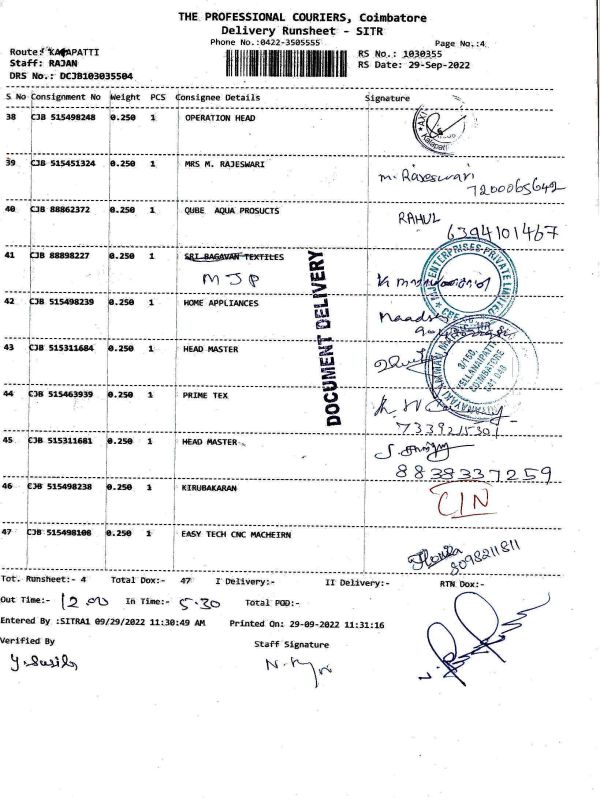 THE PROFESSIONAL COURIERS, Coimbatore
Delivery Runsheet - SITR
Phone No.:0422-3505555 Page No.:4
Route: KALAPATTI RS No.: 1030355
Staff: RAJAN RS Date: 29-Sep-2022
DRS No.: DCJB103035504
S No Consignment No Weight PCS Consignee Details Signature
38 CJB 515498248 0.250 1 OPERATION HEAD
39 CJB 515451324 0.250 1 MRS M. RAJESWARI
m. Rajeswari
7200065642
40 CJB 88862372 0.250 1 QUBE AQUA PROSUCTS
RAHUL
6394101467
41 CJB 88898227 0.250 1 SRI RAGAVAN TEXTILES
MJP
ENTERPRISES PRIVATE LIMITED
42 CJB 515498239 0.250 1 HOME APPLIANCES
DOCUMENT DELIVERY
43 CJB 515311684 0.250 1 HEAD MASTER
3/150,
VELLANAIPATTI
COIMBATORE
641 048
44 CJB 515463939 0.250 1 PRIME TEX
7339215301
45 CJB 515311681 0.250 1 HEAD MASTER
8838337259
46 CJB 515498238 0.250 1 KIRUBAKARAN
CIN
47 CJB 515498108 0.250 1 EASY TECH CNC MACHEIRN
8098211811
Tot. Runsheet:- 4 Total Dox:- 47 I Delivery:- II Delivery:- RTN Dox:-
Out Time:- 12.00 In Time:- 5.30 Total POD:-
Entered By :SITRA1 09/29/2022 11:30:49 AM Printed On: 29-09-2022 11:31:16
Verified By Staff Signature